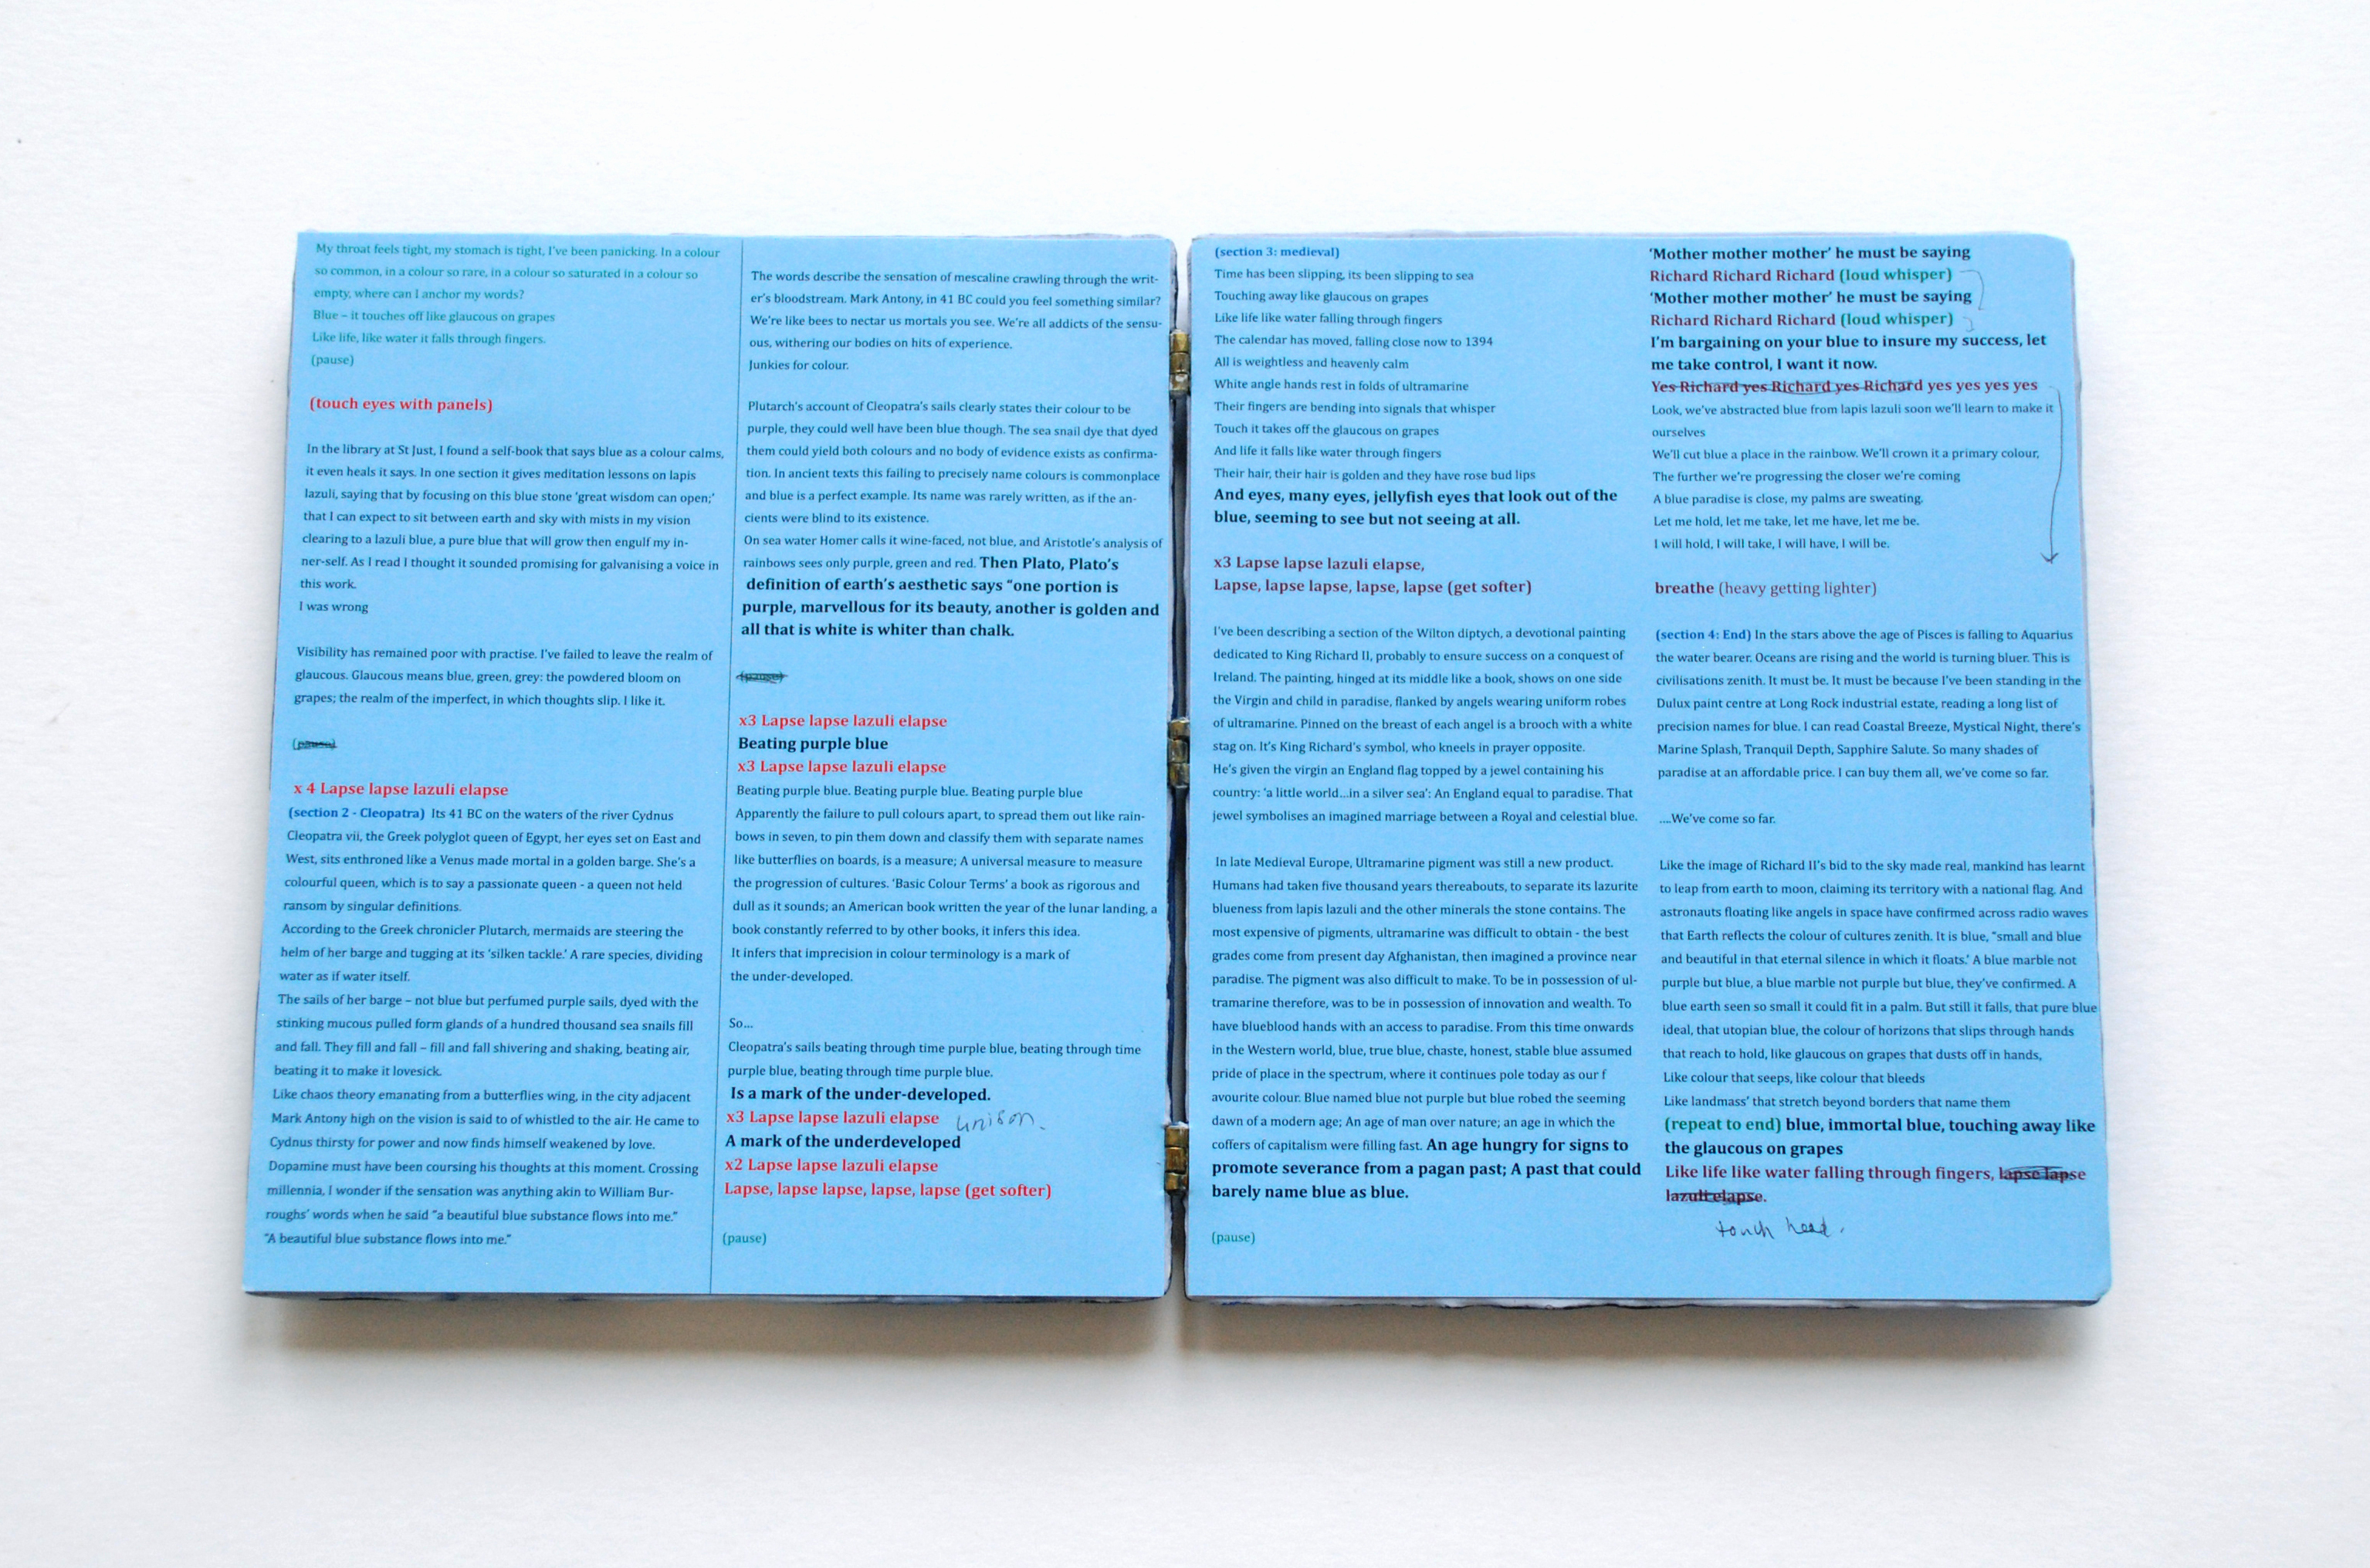 My throat feels tight, my stomach is tight, I've been panicking. In a colour
so common, in a colour so rare, in a colour so saturated in a colour so
empty, where can I anchor my words?
Blue – it touches off like glaucous on grapes
Like life, like water it falls through fingers.
(pause)
(touch eyes with panels)
In the library at St Just, I found a self-book that says blue as a colour calms,
it even heals it says. In one section it gives meditation lessons on lapis
lazuli, saying that by focusing on this blue stone 'great wisdom can open;'
that I can expect to sit between earth and sky with mists in my vision
clearing to a lazuli blue, a pure blue that will grow then engulf my in-
ner-self. As I read I thought it sounded promising for galvanising a voice in
this work.
I was wrong
Visibility has remained poor with practise. I've failed to leave the realm of
glaucous. Glaucous means blue, green, grey: the powdered bloom on
grapes; the realm of the imperfect, in which thoughts slip. I like it.
(pause)
x 4 Lapse lapse lazuli elapse
(section 2 - Cleopatra) Its 41 BC on the waters of the river Cydnus
Cleopatra vii, the Greek polyglot queen of Egypt, her eyes set on East and
West, sits enthroned like a Venus made mortal in a golden barge. She's a
colourful queen, which is to say a passionate queen - a queen not held
ransom by singular definitions.
According to the Greek chronicler Plutarch, mermaids are steering the
helm of her barge and tugging at its 'silken tackle.' A rare species, dividing
water as if water itself.
The sails of her barge – not blue but perfumed purple sails, dyed with the
stinking mucous pulled form glands of a hundred thousand sea snails fill
and fall. They fill and fall – fill and fall shivering and shaking, beating air,
beating it to make it lovesick.
Like chaos theory emanating from a butterflies wing, in the city adjacent
Mark Antony high on the vision is said to of whistled to the air. He came to
Cydnus thirsty for power and now finds himself weakened by love.
Dopamine must have been coursing his thoughts at this moment. Crossing
millennia, I wonder if the sensation was anything akin to William Bur-
roughs' words when he said "a beautiful blue substance flows into me."
"A beautiful blue substance flows into me."
The words describe the sensation of mescaline crawling through the writ-
er's bloodstream. Mark Antony, in 41 BC could you feel something similar?
We're like bees to nectar us mortals you see. We're all addicts of the sensu-
ous, withering our bodies on hits of experience.
Junkies for colour.
Plutarch's account of Cleopatra's sails clearly states their colour to be
purple, they could well have been blue though. The sea snail dye that dyed
them could yield both colours and no body of evidence exists as confirma-
tion. In ancient texts this failing to precisely name colours is commonplace
and blue is a perfect example. Its name was rarely written, as if the an-
cients were blind to its existence.
On sea water Homer calls it wine-faced, not blue, and Aristotle's analysis of
rainbows sees only purple, green and red. Then Plato, Plato's
definition of earth's aesthetic says "one portion is
purple, marvellous for its beauty, another is golden and
all that is white is whiter than chalk.
(pause)
x3 Lapse lapse lazuli elapse
Beating purple blue
x3 Lapse lapse lazuli elapse
Beating purple blue. Beating purple blue. Beating purple blue
Apparently the failure to pull colours apart, to spread them out like rain-
bows in seven, to pin them down and classify them with separate names
like butterflies on boards, is a measure; A universal measure to measure
the progression of cultures. 'Basic Colour Terms' a book as rigorous and
dull as it sounds; an American book written the year of the lunar landing, a
book constantly referred to by other books, it infers this idea.
It infers that imprecision in colour terminology is a mark of
the under-developed.
So...
Cleopatra's sails beating through time purple blue, beating through time
purple blue, beating through time purple blue.
Is a mark of the under-developed.
x3 Lapse lapse lazuli elapse unison.
A mark of the underdeveloped
x2 Lapse lapse lazuli elapse
Lapse, lapse lapse, lapse, lapse (get softer)
(pause)
(section 3: medieval)
Time has been slipping, its been slipping to sea
Touching away like glaucous on grapes
Like life like water falling through fingers
The calendar has moved, falling close now to 1394
All is weightless and heavenly calm
White angle hands rest in folds of ultramarine
Their fingers are bending into signals that whisper
Touch it takes off the glaucous on grapes
And life it falls like water through fingers
Their hair, their hair is golden and they have rose bud lips
And eyes, many eyes, jellyfish eyes that look out of the
blue, seeming to see but not seeing at all.
x3 Lapse lapse lazuli elapse,
Lapse, lapse lapse, lapse, lapse (get softer)
I've been describing a section of the Wilton diptych, a devotional painting
dedicated to King Richard II, probably to ensure success on a conquest of
Ireland. The painting, hinged at its middle like a book, shows on one side
the Virgin and child in paradise, flanked by angels wearing uniform robes
of ultramarine. Pinned on the breast of each angel is a brooch with a white
stag on. It's King Richard's symbol, who kneels in prayer opposite.
He's given the virgin an England flag topped by a jewel containing his
country: 'a little world...in a silver sea': An England equal to paradise. That
jewel symbolises an imagined marriage between a Royal and celestial blue.
In late Medieval Europe, Ultramarine pigment was still a new product.
Humans had taken five thousand years thereabouts, to separate its lazurite
blueness from lapis lazuli and the other minerals the stone contains. The
most expensive of pigments, ultramarine was difficult to obtain - the best
grades come from present day Afghanistan, then imagined a province near
paradise. The pigment was also difficult to make. To be in possession of ul-
tramarine therefore, was to be in possession of innovation and wealth. To
have blueblood hands with an access to paradise. From this time onwards
in the Western world, blue, true blue, chaste, honest, stable blue assumed
pride of place in the spectrum, where it continues pole today as our f
avourite colour. Blue named blue not purple but blue robed the seeming
dawn of a modern age; An age of man over nature; an age in which the
coffers of capitalism were filling fast. An age hungry for signs to
promote severance from a pagan past; A past that could
barely name blue as blue.
(pause)
'Mother mother mother' he must be saying
Richard Richard Richard (loud whisper)
'Mother mother mother' he must be saying
Richard Richard Richard (loud whisper)
I'm bargaining on your blue to insure my success, let
me take control, I want it now.
Yes Richard yes Richard yes Richard yes yes yes yes
Look, we've abstracted blue from lapis lazuli soon we'll learn to make it
ourselves
We'll cut blue a place in the rainbow. We'll crown it a primary colour,
The further we're progressing the closer we're coming
A blue paradise is close, my palms are sweating.
Let me hold, let me take, let me have, let me be.
I will hold, I will take, I will have, I will be.
breathe (heavy getting lighter)
(section 4: End) In the stars above the age of Pisces is falling to Aquarius
the water bearer. Oceans are rising and the world is turning bluer. This is
civilisations zenith. It must be. It must be because I've been standing in the
Dulux paint centre at Long Rock industrial estate, reading a long list of
precision names for blue. I can read Coastal Breeze, Mystical Night, there's
Marine Splash, Tranquil Depth, Sapphire Salute. So many shades of
paradise at an affordable price. I can buy them all, we've come so far.
....We've come so far.
Like the image of Richard II's bid to the sky made real, mankind has learnt
to leap from earth to moon, claiming its territory with a national flag. And
astronauts floating like angels in space have confirmed across radio waves
that Earth reflects the colour of cultures zenith. It is blue, "small and blue
and beautiful in that eternal silence in which it floats.' A blue marble not
purple but blue, a blue marble not purple but blue, they've confirmed. A
blue earth seen so small it could fit in a palm. But still it falls, that pure blue
ideal, that utopian blue, the colour of horizons that slips through hands
that reach to hold, like glaucous on grapes that dusts off in hands,
Like colour that seeps, like colour that bleeds
Like landmass' that stretch beyond borders that name them
(repeat to end) blue, immortal blue, touching away like
the glaucous on grapes
Like life like water falling through fingers, lapse lapse
lazuli elapse.
touch head.